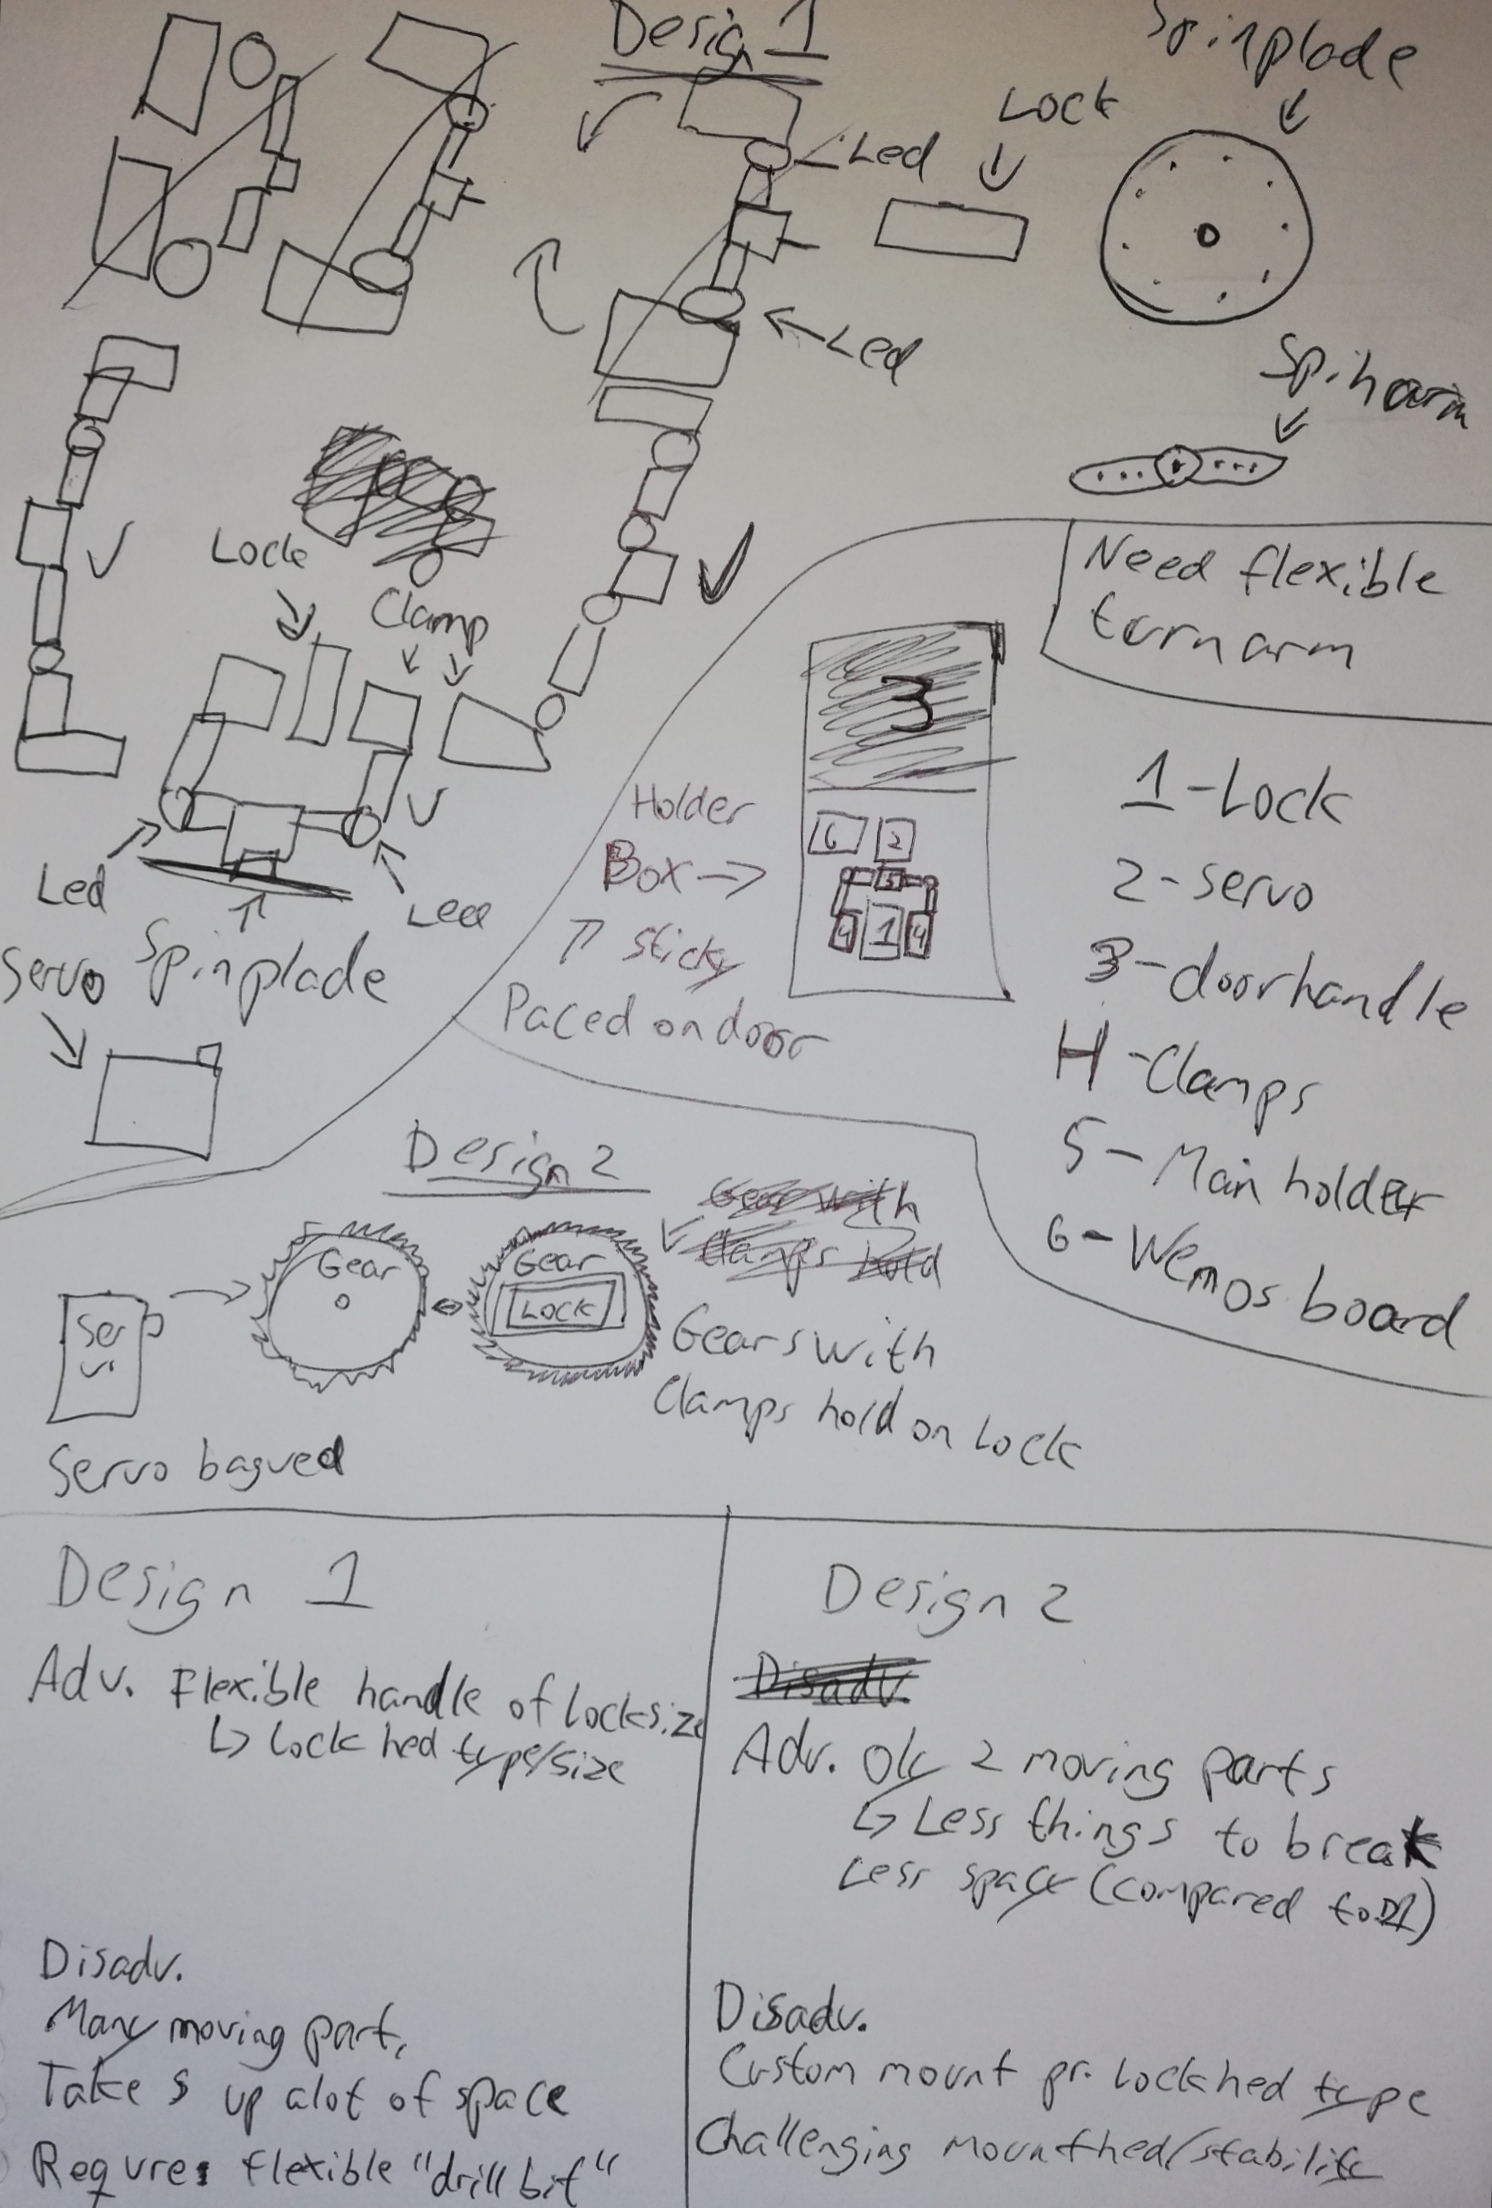 Design 1
Spinplade
Lock
Led
Led
Spinarm
Lock
Clamp
Led
Led
Spinplade
Servo
Need flexible
turn arm
3
6 2
5
4 1 4
Holder
Box →
↑ sticky
Paced on door
1 - Lock
2 - servo
3 - doorhandle
4 - Clamps
5 - Main holder
6 - Wemos board
Design 2
Gear with
Clamps hold
Gear
Gear
Lock
Gears with
Clamps hold on Lock
Servo bagved
Design 1
Adv. Flexible handle of locksize
↳ Lock hed type/size
Disadv.
Many moving part,
Takes up alot of space
Requres flexible "drill bit"
Design 2
Disadv.
Adv. 2 moving parts
↳ Less things to break
Less space (compared to D1)
Disadv.
Custom mount pr. Lockhed type
Challenging mounthed/stability